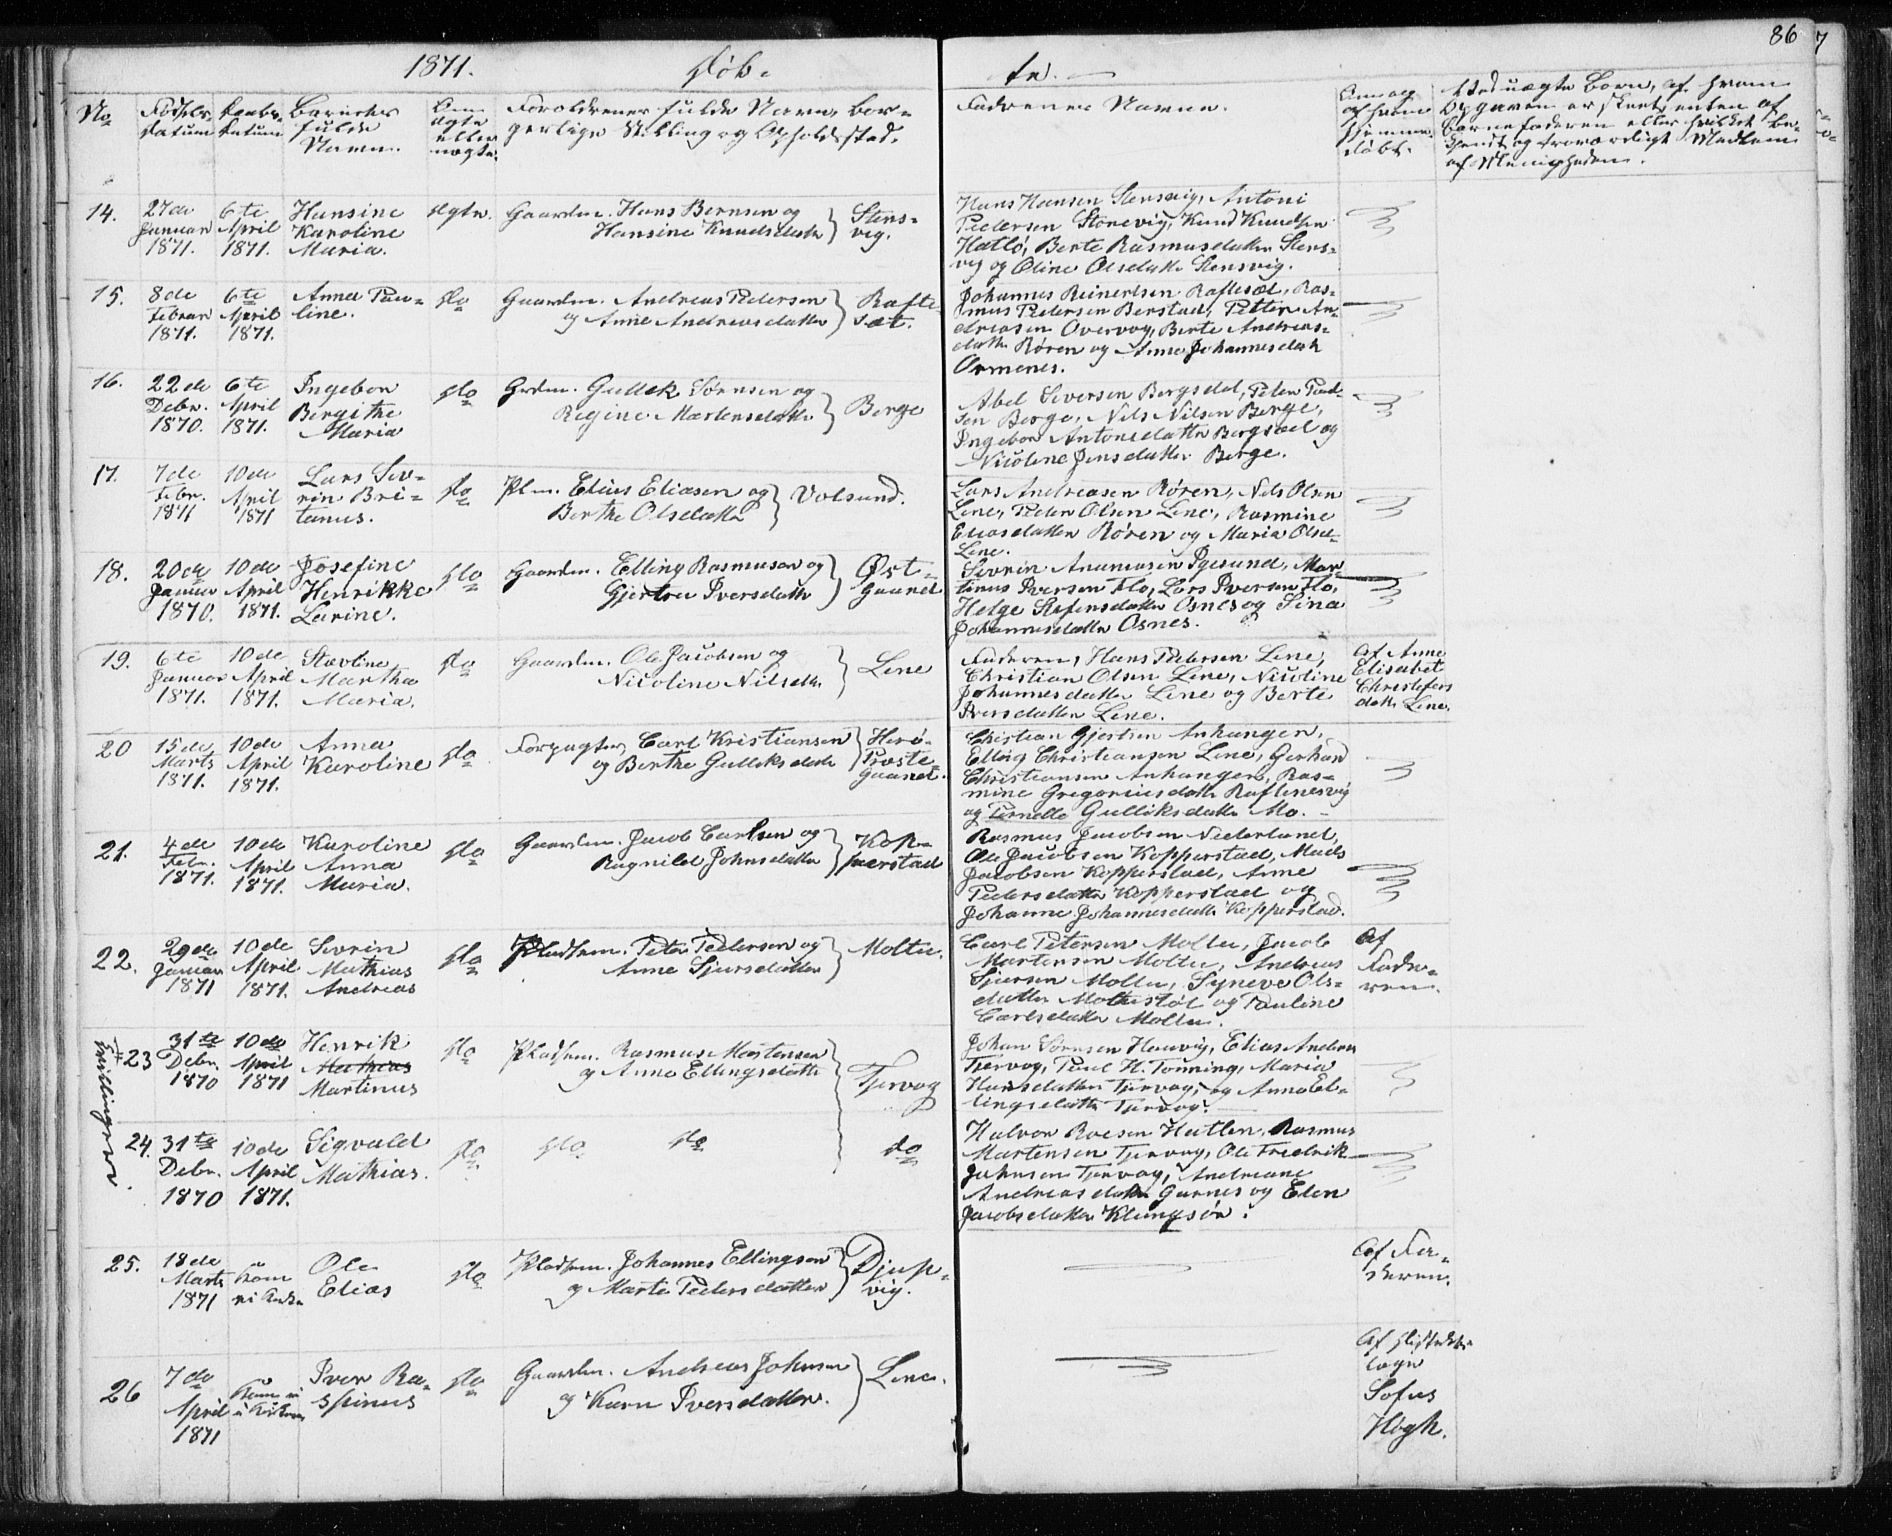 86
1871.
Døb-
te.
No
Fødsels-
datum
Daabs-
datum
Barnets
fulde
Navn.
Om
ægte
eller
uægte.
Forældrenes fulde Navn, bor-
gerlige Stilling og Opholdssted.
Faddernes Navne.
Om og
af hvem
hjemme-
døbt.
Ved uægte Børn, af hvem
Opgaven er skeet, enten af
Barnefaderen eller hvilket be-
kjendt og troværdigt Medlem
af Menigheden.
14.
27de
Januar
1871.
6te
April
1871.
Hansine
Karoline
Maria.
Ægte.
Gaardm. Hans Bernsen og
Hansine Knudsdatter
Stens-
vig.
Hans Hansen Stensvig, Antoni
Pedersen Stonevig, Knud Knudsen
Hatlø, Berte Rasmusdatter Stens-
vig og Oline Olsdatter Stensvig.
15.
8de
Februar
1871.
6te
April
1871.
Anna Pau-
line.
do
Gaardm. Andreas Pedersen
og Anne Andreasdatter
Rafte-
sæt.
Johannes Reinertsen Raftesæt, Ras-
mus Pedersen Berstad, Petter An-
dreasen Overvog, Berte Andreas-
datter Røren og Anne Johannesdatter
Ormenes.
16.
22de
Debr.
1870.
6te
April
1871.
Ingebor
Bergithe
Maria
do
Grdm. Gullek Sørnsen og
Regine Martensdatter
Berge
Abel Seversen Bergsdal, Peter Ped-
sen Berge, Nils Nilsen Berge,
Ingebor Antonsdatter Bergsæd og
Nicoline Jensdatter Berge.
17.
7de
Febr.
1871
10de
April
1871
Lars Siv-
rin Bri-
tanus.
do
Plm. Elius Eliasen og
Berthe Olsdatter
Volsund.
Lars Andreasen Røren, Nils Olsen
Lene, Peder Olsen Lene, Rasmine
Eliasdatter Røren og Maria Olsd-
Lene.
18.
20de
Januar
1870.
10de
April
1871.
Josefine
Henrikke
Larine.
do
Gaardm. Elling Rasmusen og
Gjertru Iversdatter
Øst-
Gaard
Sivrin Ananiasen Igesund, Mar-
tinus Iversen Flo, Lars Iversen Flo,
Helge Stefensdatter Osnes og Sina
Johannesdatter Osnes.
19.
6te
Januar
1871.
10de
April
1871.
Stavline
Martha
Maria.
do
Gaardm. Ole Jacobsen og
Nicoline Nilsdtr
Lene
Faderen, Hans Pedersen Lene,
Christian Olsen Lene, Nicoline
Johannesdatter Lene og Berte
Iversdatter Lene.
Af Anne
Elisabet
Christofers
datter Lene.
20
15de
Marts
1871.
10de
April
1871.
Anna
Karoline
do
Forpagter, Carl Kristiansen
og Berthe Gulleksdatter
Herø-
Præste-
Gaard.
Christian Gjertsen Anhanger,
Elling Christiansen Lene, Gerhard
Christiansen Anhanger, Ras-
mine Gregoriusdatter Raftenesvig
og Pernelle Gulliksdatter Mo.
21.
4de
Febr.
1871.
10de
April
1871.
Karoline
Anna
Maria.
do
Gaardm. Jacob Carlsen og
Ragnild Johnsdatter
Kop-
perstad
Rasmus Jacobsen Nederland,
Ole Jacobsen Kopperstad, Mads
Jacobsen Kopperstad, Anne
Pedersdatter Kopperstad og
Johanne Johannesdatter Kopperstad.
22.
29de
Januar
1871
10de
April
1871.
Sivrin
Mathias
Andreas
do
Pladsem. Peter Pedersen og
Anne Sjursdatter
Moltu.
Carl Petersen Moltu, Jacob
Martensen Moltu, Andreas
Sjursen Moltu, Syneve Ols-
datter Moltustøl og Pauline
Carlsdatter Moltu.
Af
Fade-
ren.
Tvillinger.
23
31te
Debr.
1870
10de
April
1871
Henrik
Mathias
Martinus
do
Pladsem. Rasmus Mortensen
og Anne Ellingsdatter
Tjervog
Johan Sørnsen Hauvig, Elias Andrea
Tjervog, Paul H. Tønning, Maria
Hansdatter Tjervog, og Anna El-
lingsdatter Tjervog.
24.
31te
Debr.
1870
10de
April
1871.
Sigvald
Mathias.
do
do
do
do
Halvor Roesen Hatlen, Rasmus
Martensen Tjervog, Ole Fredrik
Johnsen Tjervog, Andreane
Andreasdatter Gurnes og Elen
Jacobsdatter Klungsør.
25.
18de
Marts
1871
Kom
ei Kirke
Ole
Elias
do
Pladsem. Johannes Ellingsen
og Marte Pedersdatter
Djup-
vig.
Af Fa-
deren.
26
7de
April
1871
Kom ei
i Kirken
Iver Ra-
spinus
do
Gaardm. Andreas Johnsen
og Karn Iversdatter.
Lene.
Af Distrikts-
læge
Sofus
Høgh.